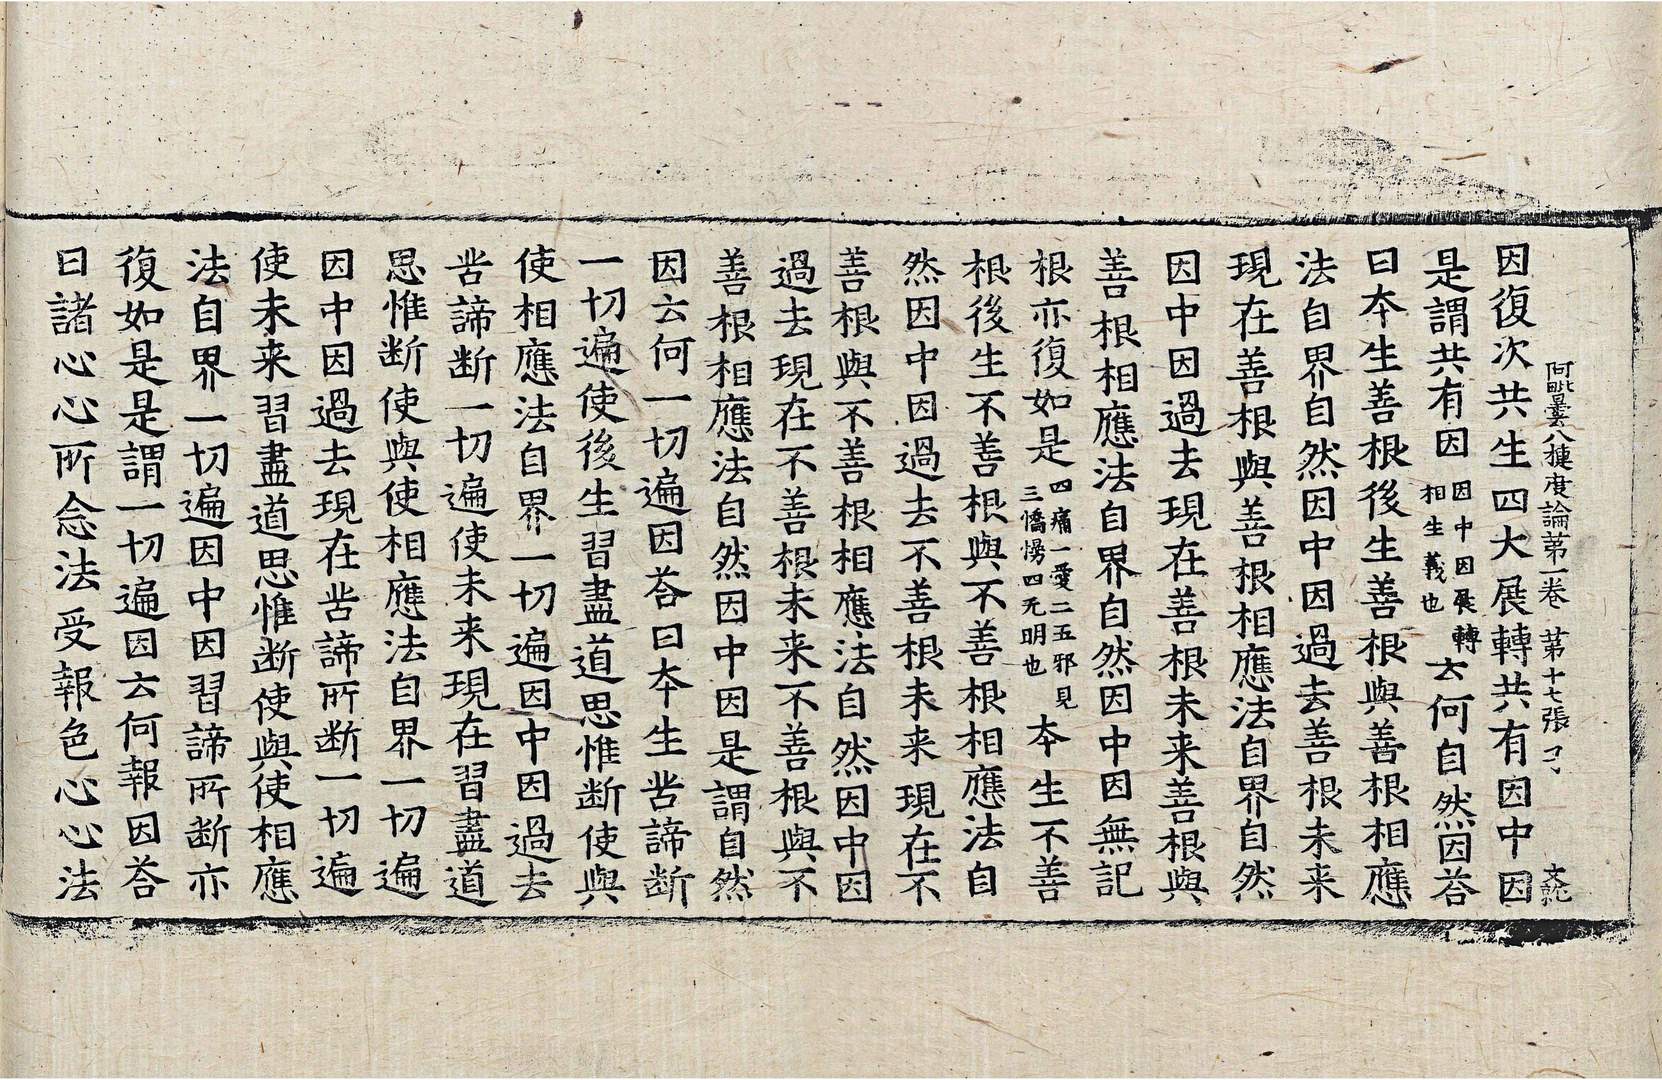 阿毗曇八犍度論第一卷 第十七張
因復次共生四大展轉共有因中因
是謂共有因 因中因展轉 相生義也 云何自然因荅
曰夲生善根後生善根與善根相應
法自界自然因中因過去善根未来
現在善根與善根相應法自界自然
因中因過去現在善根未来善根與
善根相應法自界自然因中因無記
根亦復如是 四痛一愛二五邪見 三憍慢四无明也 夲生不善
根後生不善根與不善根相應法自
然因中因過去不善根未来現在不
善根與不善根相應法自然因中因
過去現在不善根未来不善根與不
善根相應法自然因中因是謂自然
因云何一切遍因荅曰夲生苦諦断
一切遍使後生習盡道思惟断使與
使相應法自界一切遍因中因過去
苦諦断一切遍使未来現在習盡道
思惟断使與使相應法自界一切遍
因中因過去現在苦諦所断一切遍
使未来習盡道思惟断使與使相應
法自界一切遍因中因習諦所断亦
復如是是謂一切遍因云何報因荅
曰諸心心所念法受報色心心法